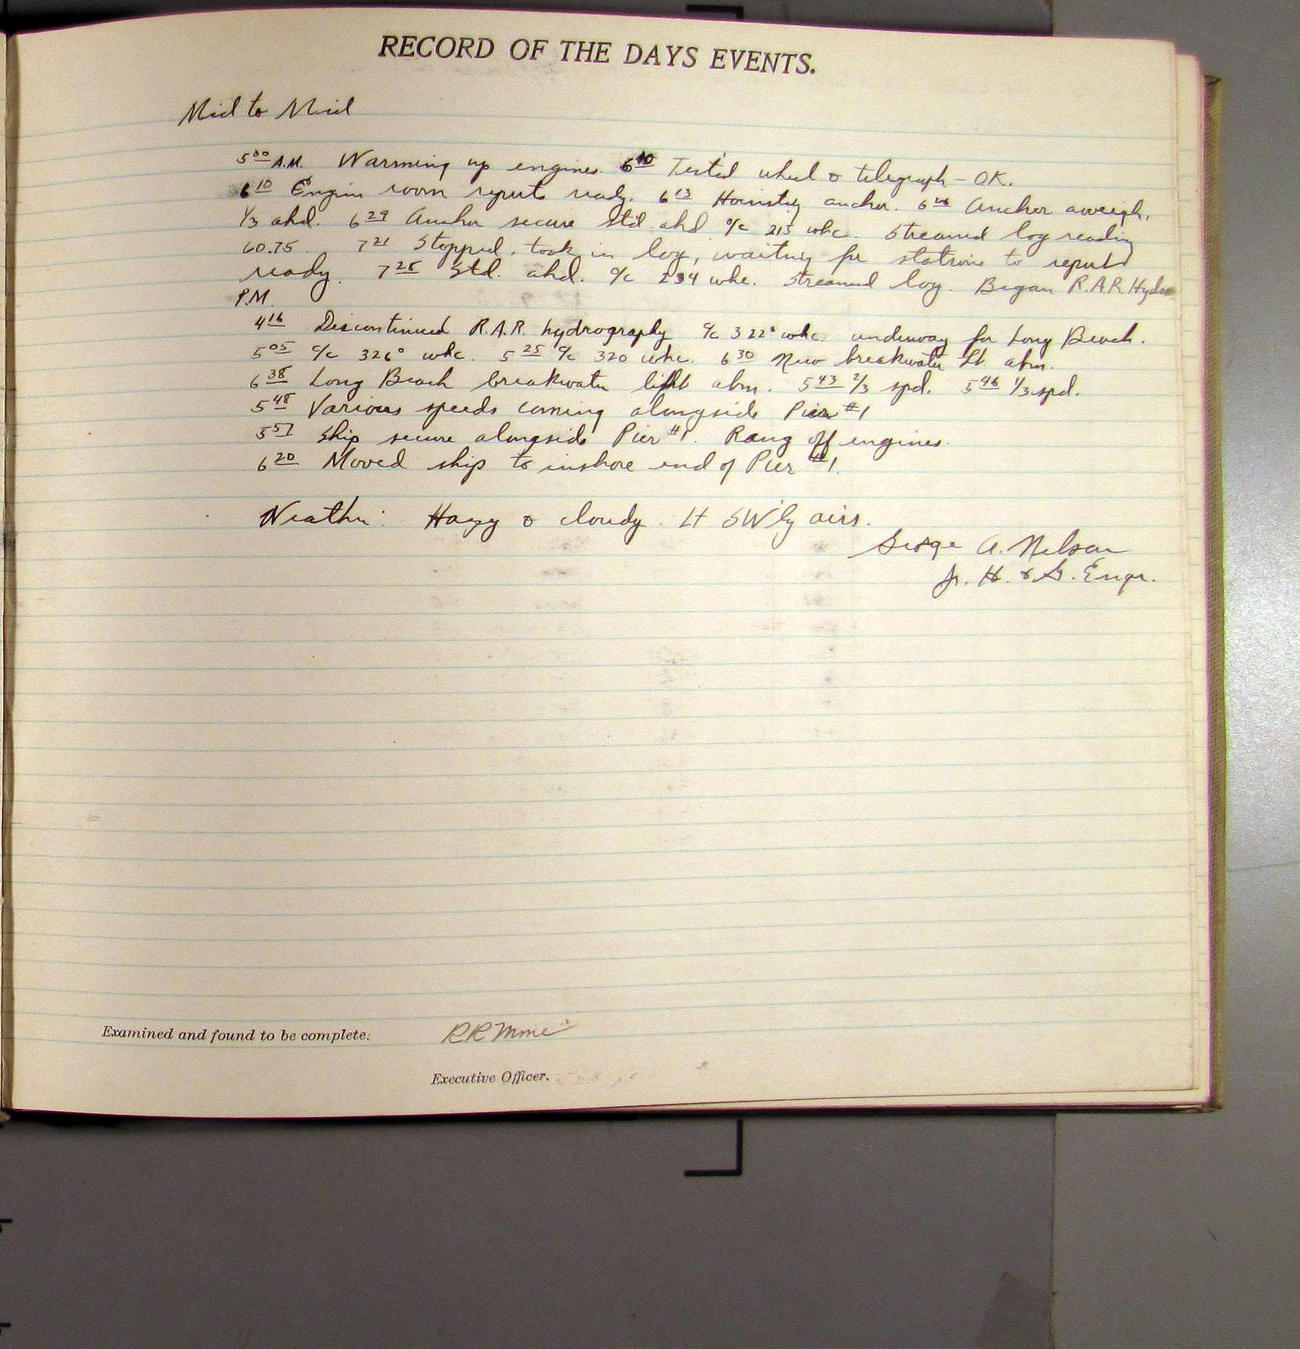 RECORD OF THE DAYS EVENTS.
Mid to Mid
5⁰⁰ A.M. Warming up engines. 6¹⁰ Tested wheel & telegraph - OK.
6¹⁰ Engine room reports ready. 6¹³ Hoisting anchor. Anchor aweigh,
1/3 ahd. 6²⁹ Anchor secure Std. ahd c/c 215 whc. Streamed log reading
60.75. 7²¹ Stopped, took in log, waiting for stations to report
ready. 7²⁵ Std. ahd. c/c 234 whc. Streamed log. Began R.A.R. Hydro
P.M.
4¹⁶ Discontinued R.A.R. hydrography c/c 322° whc. underway for Long Beach.
5⁰⁵ c/c 326° whc. 5²⁵ c/c 320 whc. 6³⁰ New breakwater Lt. abm.
6³⁸ Long Beach breakwater light abm. 5⁴³ 2/3 spd. 5⁴⁶ 1/3 spd.
5⁴⁸ Various speeds coming alongside Pier #1
5⁵⁷ Ship secure alongside Pier #1. Rang off engines.
6²⁰ Moved ship to inshore end of Pier #1.
Weather: Hazy & cloudy. Lt SW'ly airs.
George A. Nelson
Jr. H. & G. Engr.
Examined and found to be complete:
Executive Officer.